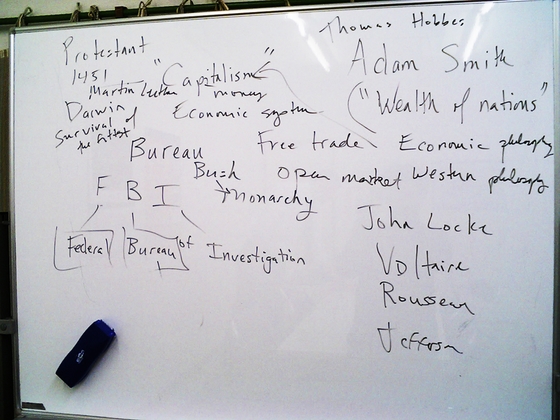 Thomas Hobbes
Protestant
1451
Martin Luther
"Capitalism"
money
Adam Smith
("Wealth of nations"
Darwin
Economic system
Survival of
the fittest
Free trade
Economic philosophy
Bureau
Bush
open market
Western philosophy
→ monarchy
F B I
John Locke
Federal Bureau of Investigation
Voltaire
Rousseau
Jefferson